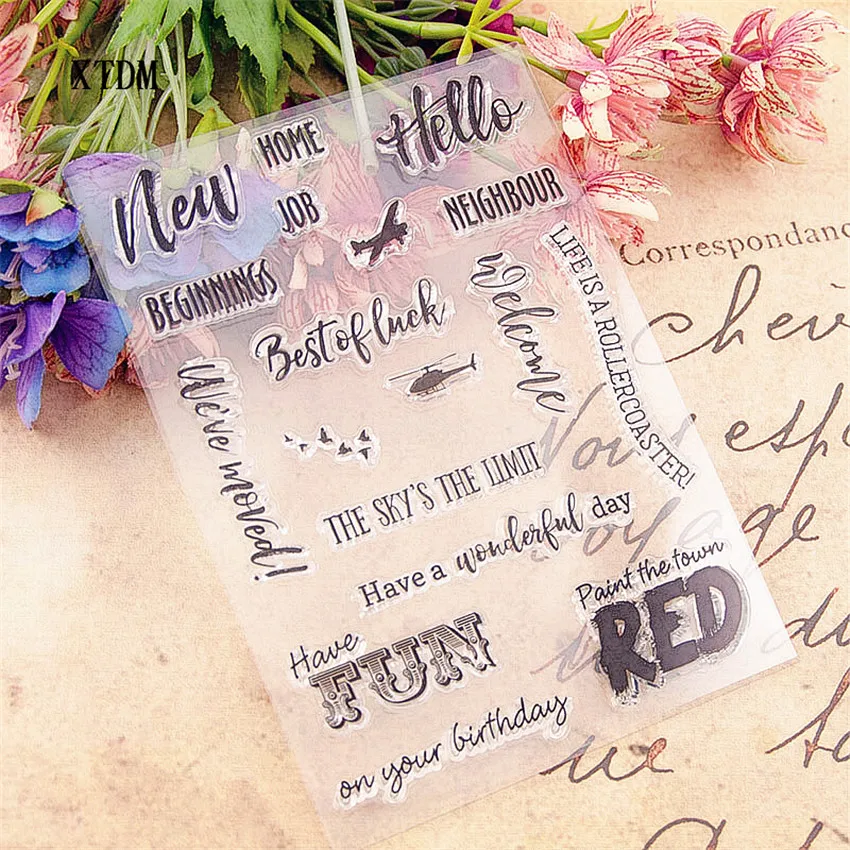 XTDM
HOME
Hello
New
JOB
NEIGHBOUR
BEGINNINGS
Best of luck
Welcome
LIFE IS A ROLLERCOASTER!
We've moved!
THE SKY'S THE LIMIT
Have a wonderful day
Paint the town
RED
Have
FUN
on your birthday
Correspondanc
chèv
Vous esp
Voyage